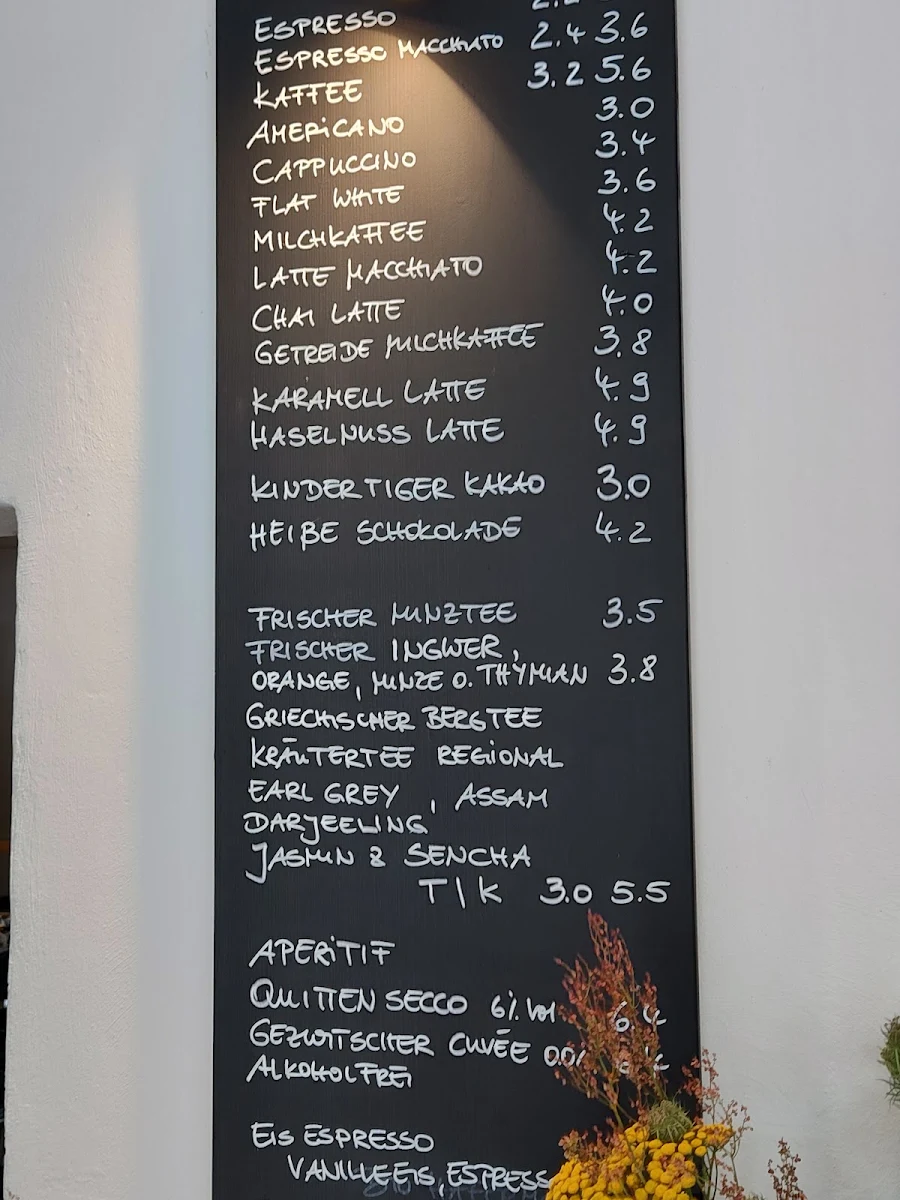 ESPRESSO
ESPRESSO MACCHIATO 2.4 3.6
KAFFEE 3.2 5.6
AMERICANO 3.0
CAPPUCCINO 3.4
FLAT WHITE 3.6
MILCHKAFFEE 4.2
LATTE MACCHIATO 4.2
CHAI LATTE 4.0
GETREIDE MILCHKAFFEE 3.8
KARAMELL LATTE 4.9
HASELNUSS LATTE 4.9
KINDER TIGER KAKAO 3.0
HEIßE SCHOKOLADE 4.2
FRISCHER MINZTEE 3.5
FRISCHER INGWER,
ORANGE, MINZE O. THYMIAN 3.8
GRIECHISCHER BERGTEE
KRÄUTERTEE REGIONAL
EARL GREY, ASSAM
DARJEELING
JASMIN & SENCHA
T|K 3.0 5.5
APERITIF
QUITTEN SECCO 6% Vol
GEZWITSCHER CUVÉE
ALKOHOLFREI
EIS ESPRESSO
VANILLEEIS, ESPRESS